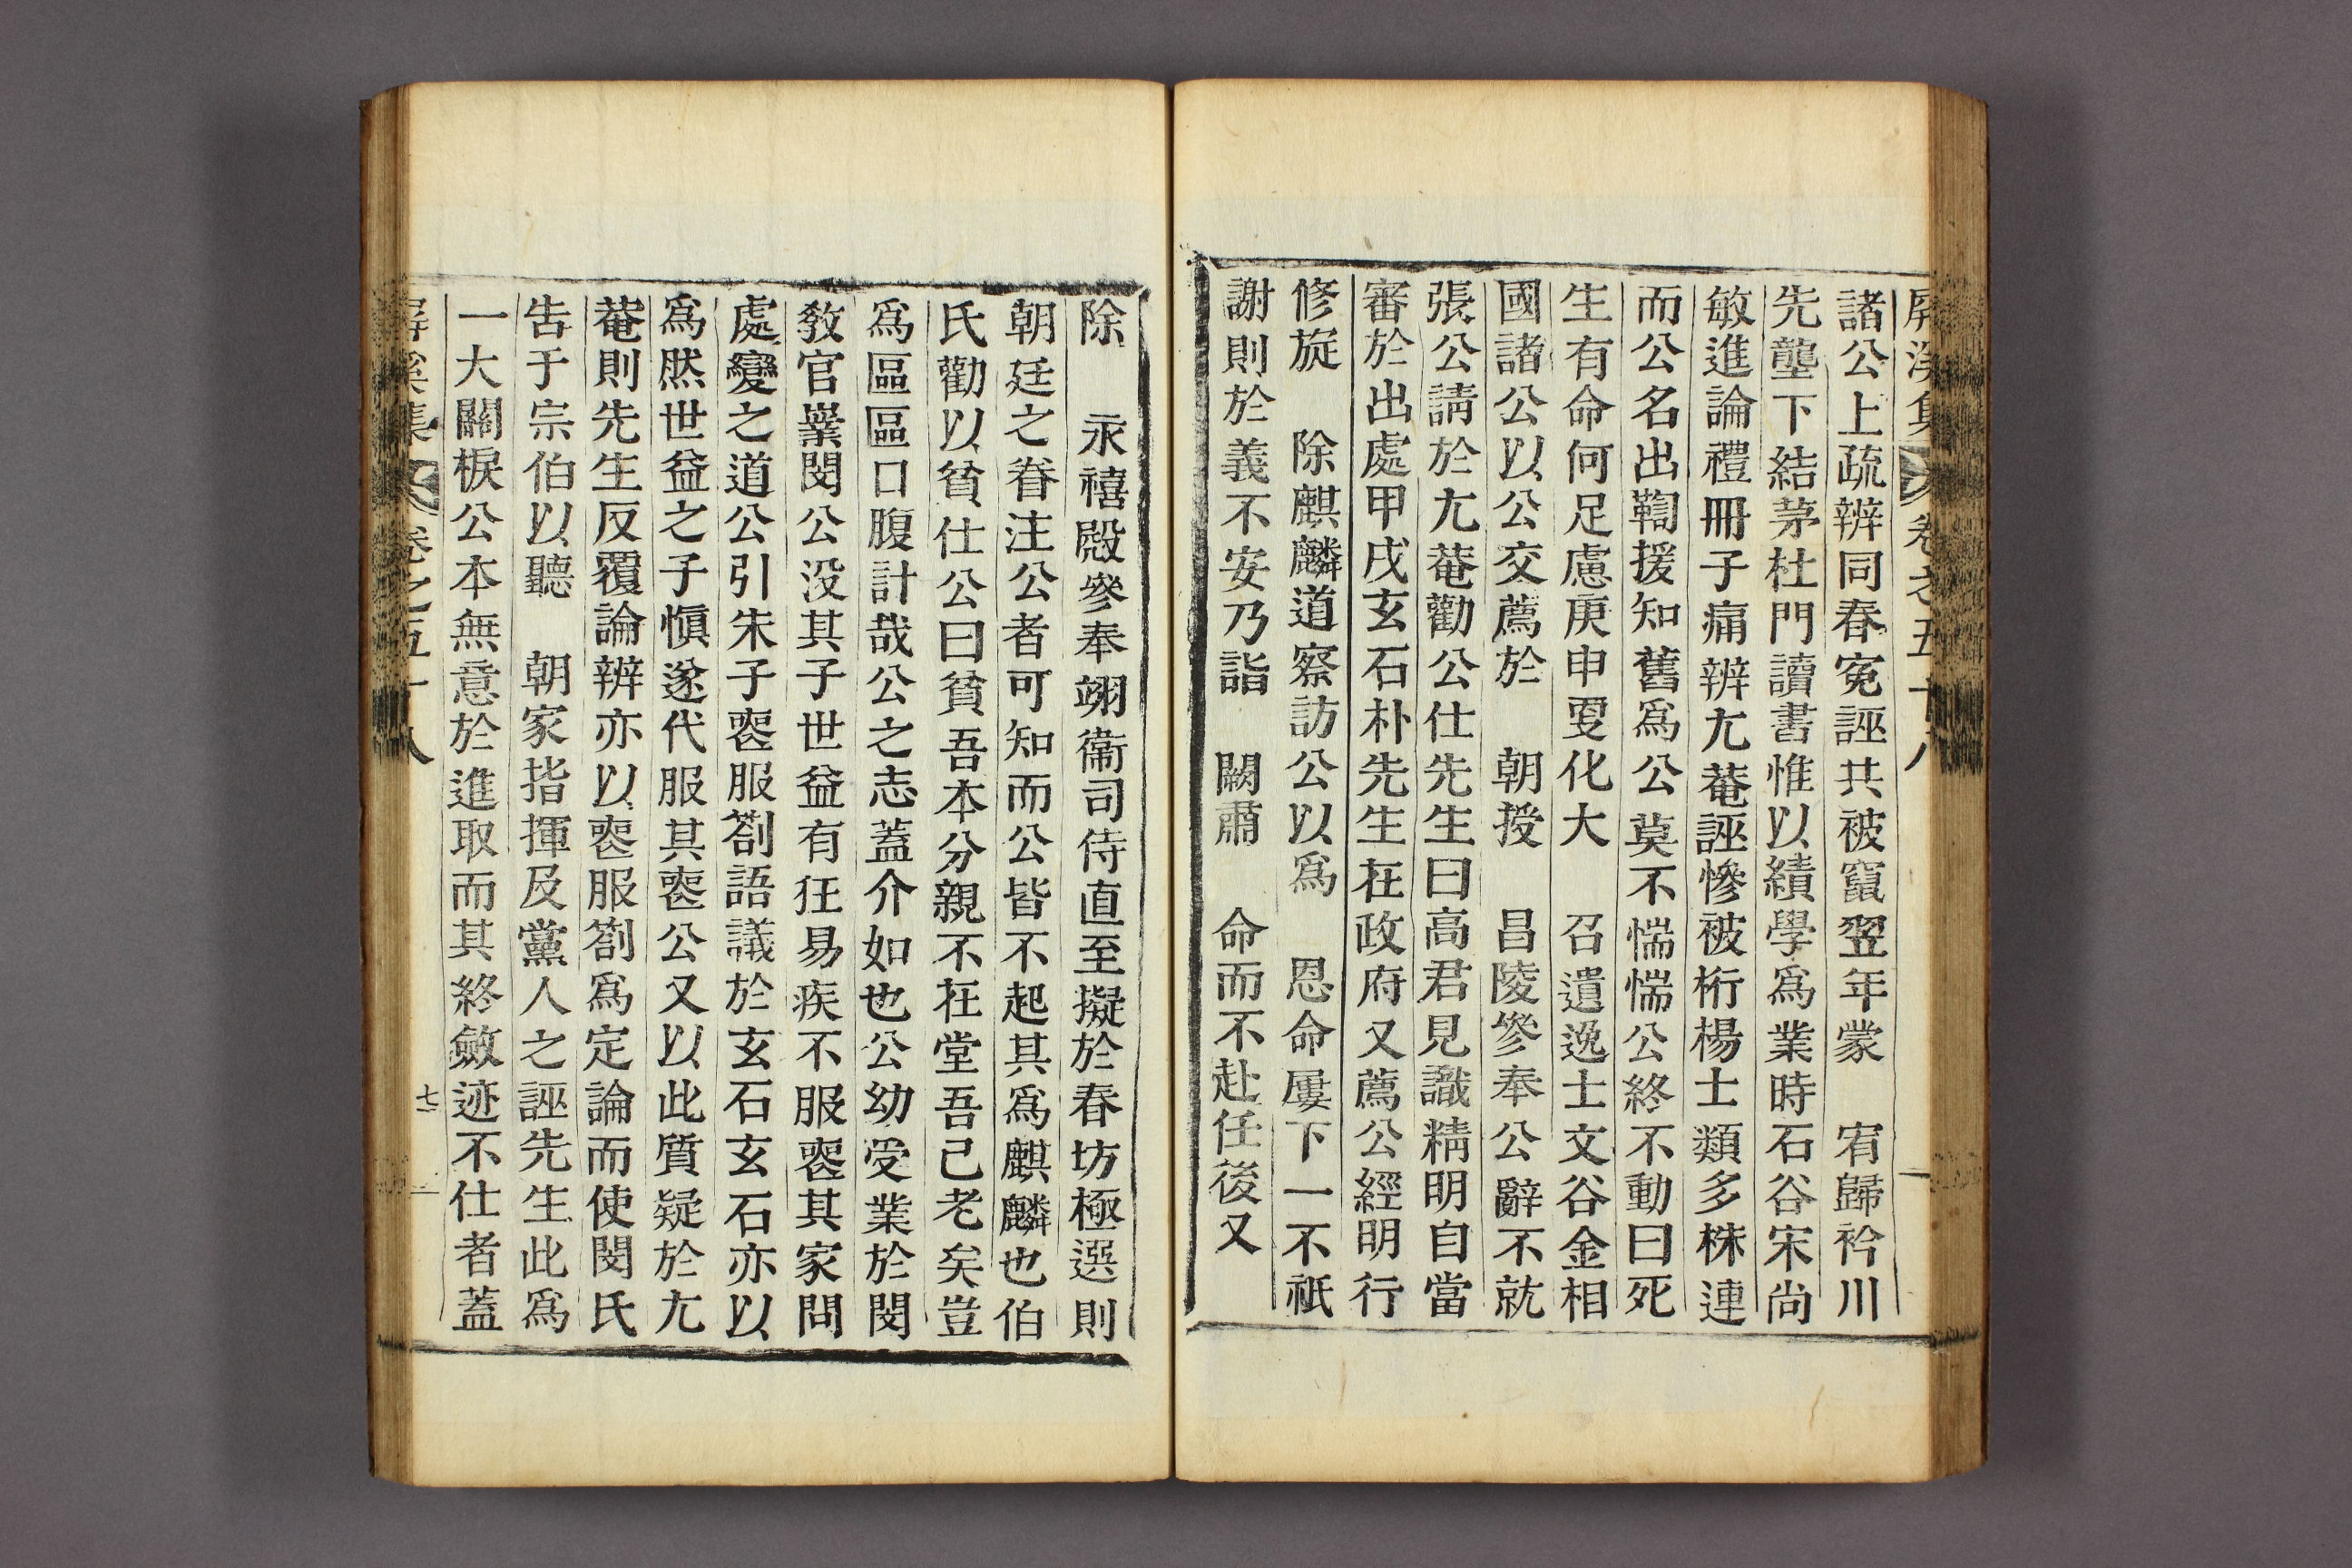 屛溪集 卷之五十八
諸公上疏辨同春寃誣共被竄翌年蒙 宥歸衿川
先壟下結茅杜門讀書惟以績學爲業時石谷宋尙
敏進論禮冊子痛辨尢菴誣慘被桁楊士類多株連
而公名出鞫援知舊爲公莫不惴惴公終不動曰死
生有命何足慮庚申更化大 召遺逸士文谷金相
國諸公以公交薦於 朝授 昌陵參奉公辭不就
張公請於尢菴勸公仕先生曰高君見識精明自當
審於出處甲戌玄石朴先生在政府又薦公經明行
修旋 除麒麟道察訪公以爲 恩命屢下一不祇
謝則於義不安乃詣 闕肅 命而不赴任後又
除 永禧殿參奉翊衞司侍直至擬於春坊極選則
朝廷之眷注公者可知而公皆不起其爲麒麟也伯
氏勸以貧仕公曰貧吾本分親不在堂吾已老矣豈
爲區區口腹計哉公之志蓋介如也公幼受業於閔
敎官嶪閔公没其子世益有狂易疾不服喪其家問
處變之道公引朱子喪服劄語議於玄石玄石亦以
爲然世益之子愼遂代服其喪公又以此質疑於尢
菴則先生反覆論辨亦以喪服劄爲定論而使閔氏
告于宗伯以聽 朝家指揮及黨人之誣先生此爲
一大關棙公本無意於進取而其終斂迹不仕者蓋
屛溪集 卷之五十八 七